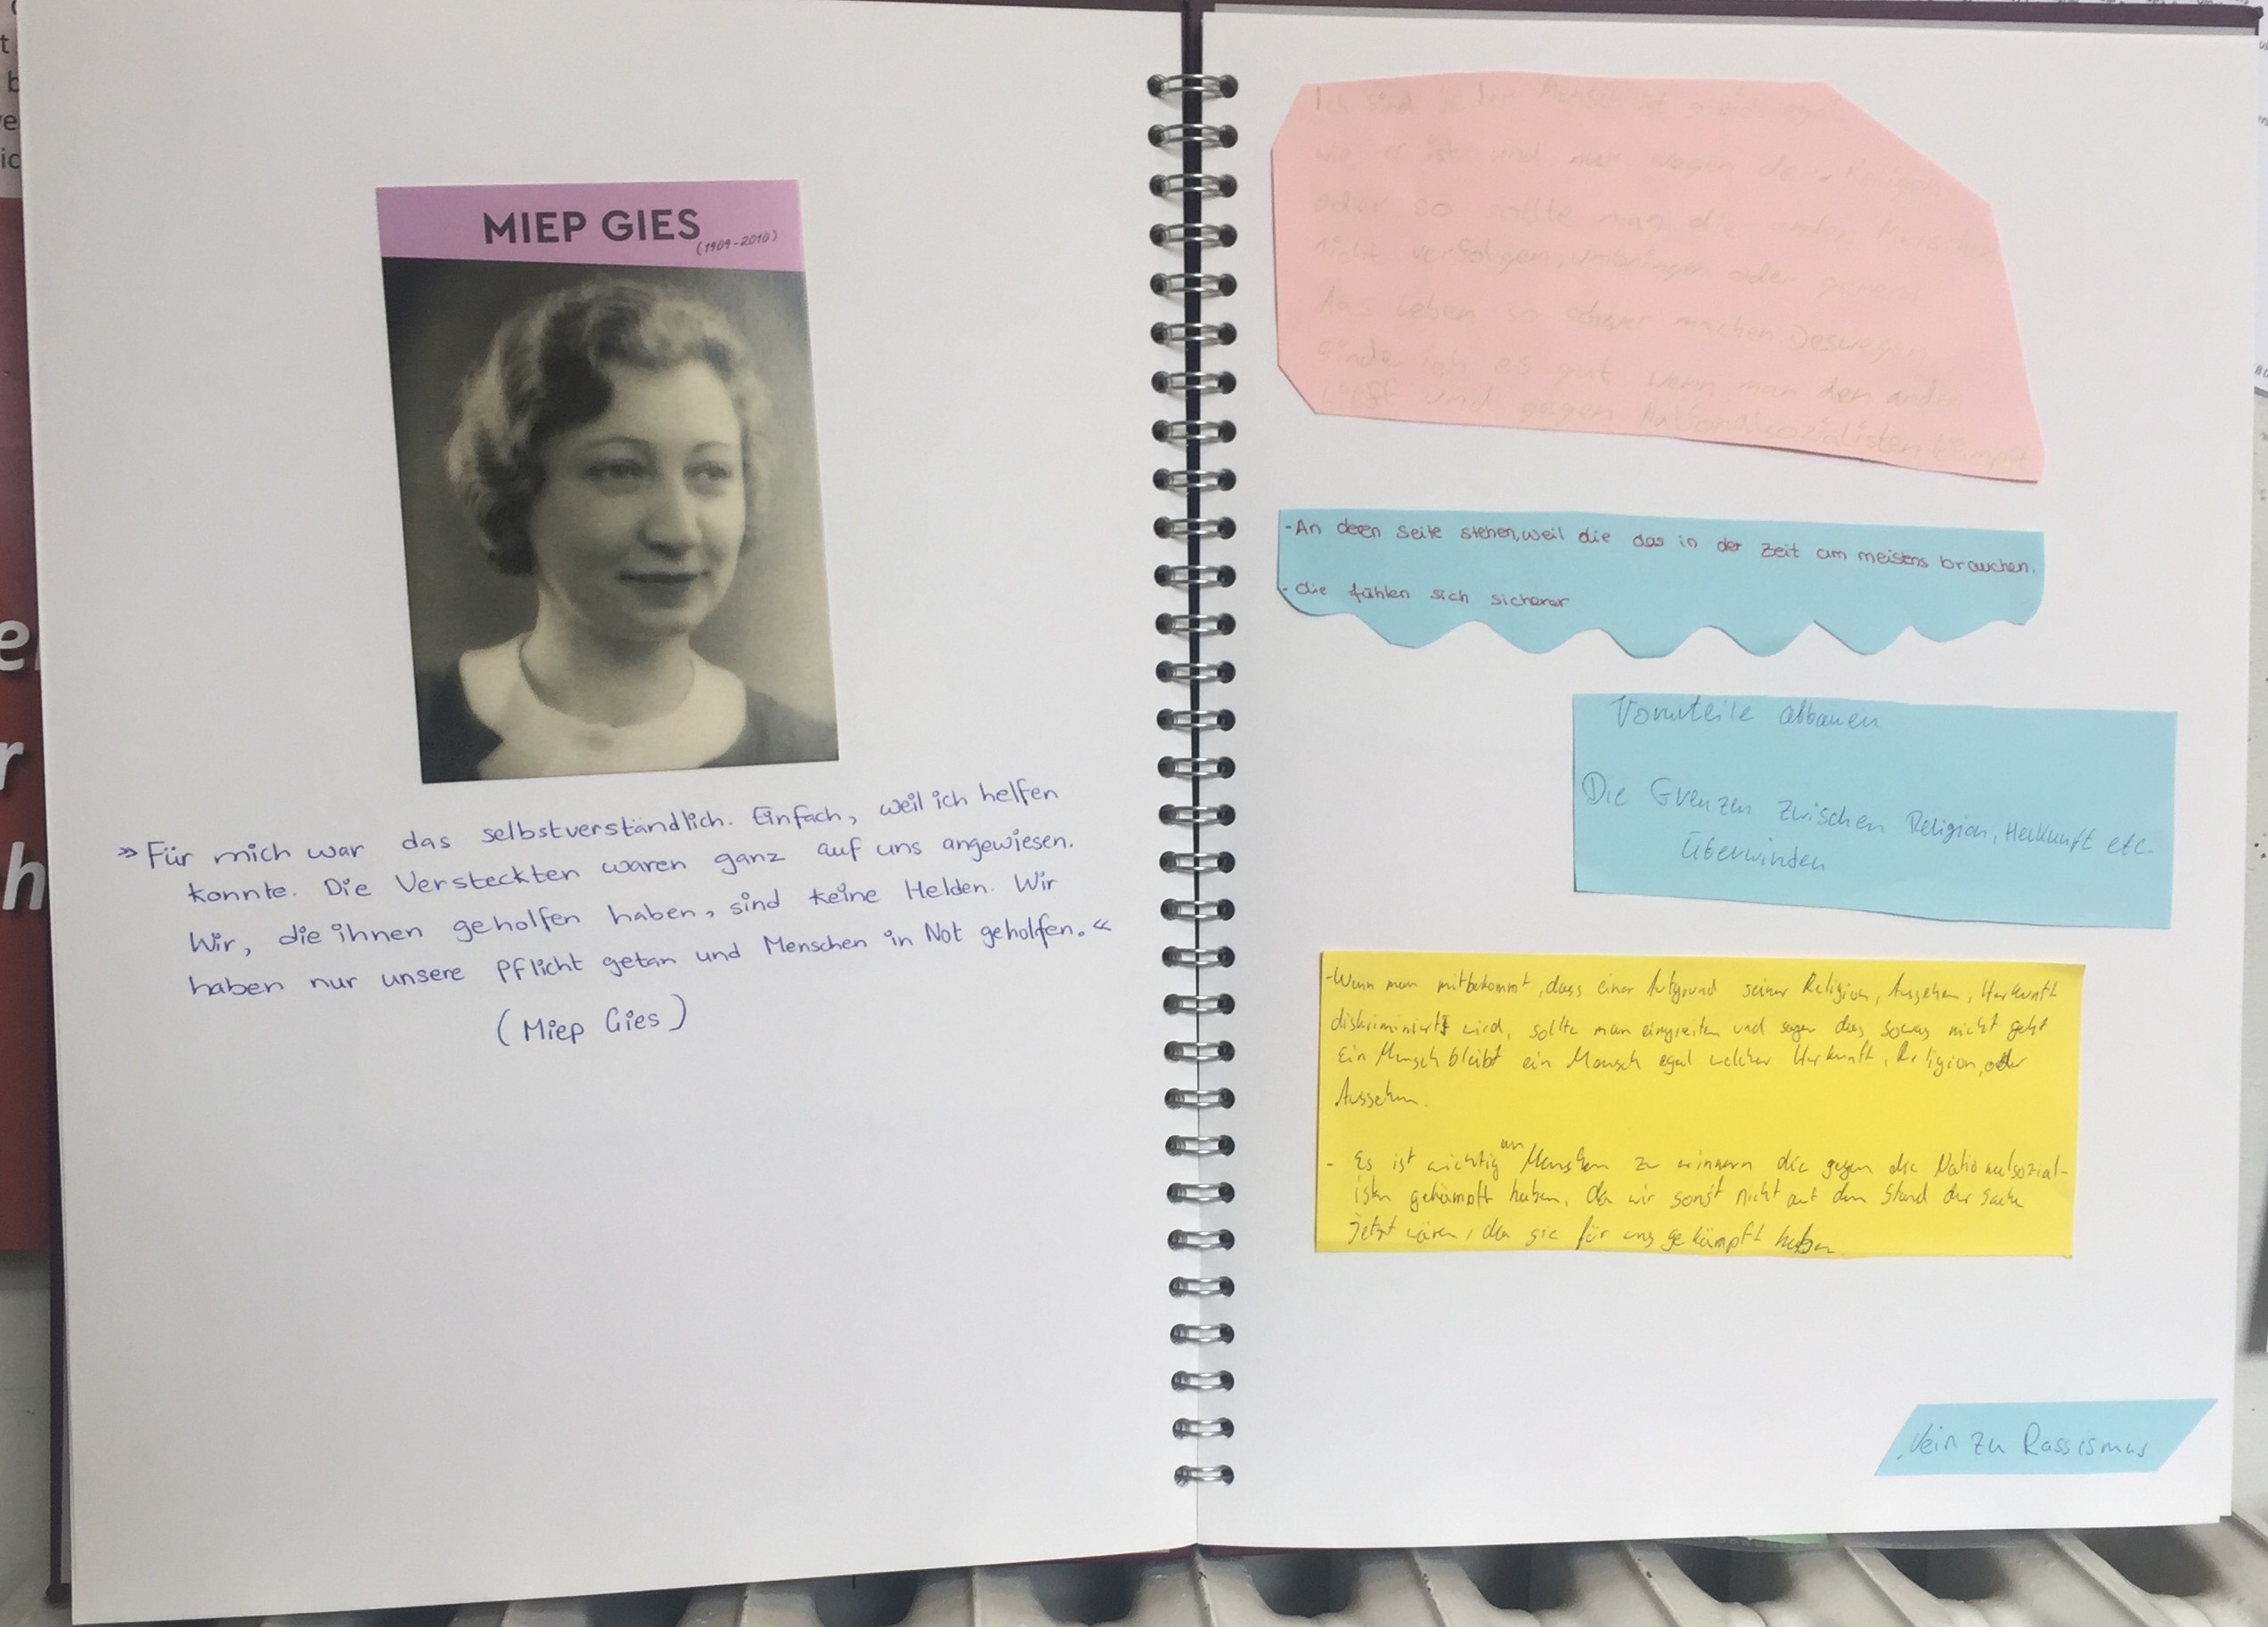 MIEP GIES
(1909-2010)
»Für mich war das selbstverständlich. Einfach, weil ich helfen
konnte. Die Versteckten waren ganz auf uns angewiesen.
Wir, die ihnen geholfen haben, sind keine Helden. Wir
haben nur unsere Pflicht getan und Menschen in Not geholfen.«
(Miep Gies)
Mensch ist
wie er ist und nur wegen der Religion
oder so sollte man die
nicht verfolgen, umbringen oder
das Leben so schwer machen. Deswegen
finde ich es gut wenn man den anderen
hilft und gegen Nationalsozialisten kämpft
-An deren Seite stehen, weil die das in der Zeit am meistens brauchen.
- die fühlen sich sicherer
Vorurteile abbauen
Die Grenzen zwischen Religion, Herkunft etc.
überwinden
-Wenn man mitbekommt, dass einer Aufgrund seiner Religion, Aussehen, Herkunft
diskriminiert wird, sollte man eingreifen und sagen das sowas nicht geht
Ein Mensch bleibt ein Mensch egal welcher Herkunft, Religion, oder
Aussehen.
- Es ist wichtig an Menschen zu erinnern die gegen die Nationalsozial-
isten gekämpft haben, da wir sonst nicht auf dem Stand der Sache
jetzt wären, da sie für uns gekämpft haben
Nein zu Rassismus